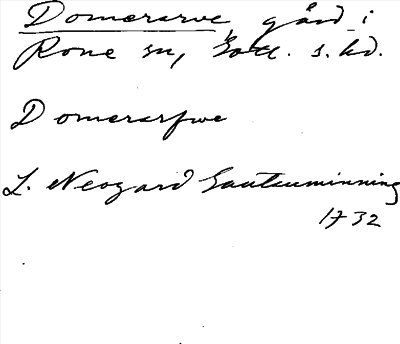 Domerarve, gård i
Rone sn, Gotl. s. hd.
Domerarfwe
L. Neogard Gautauminning
1732